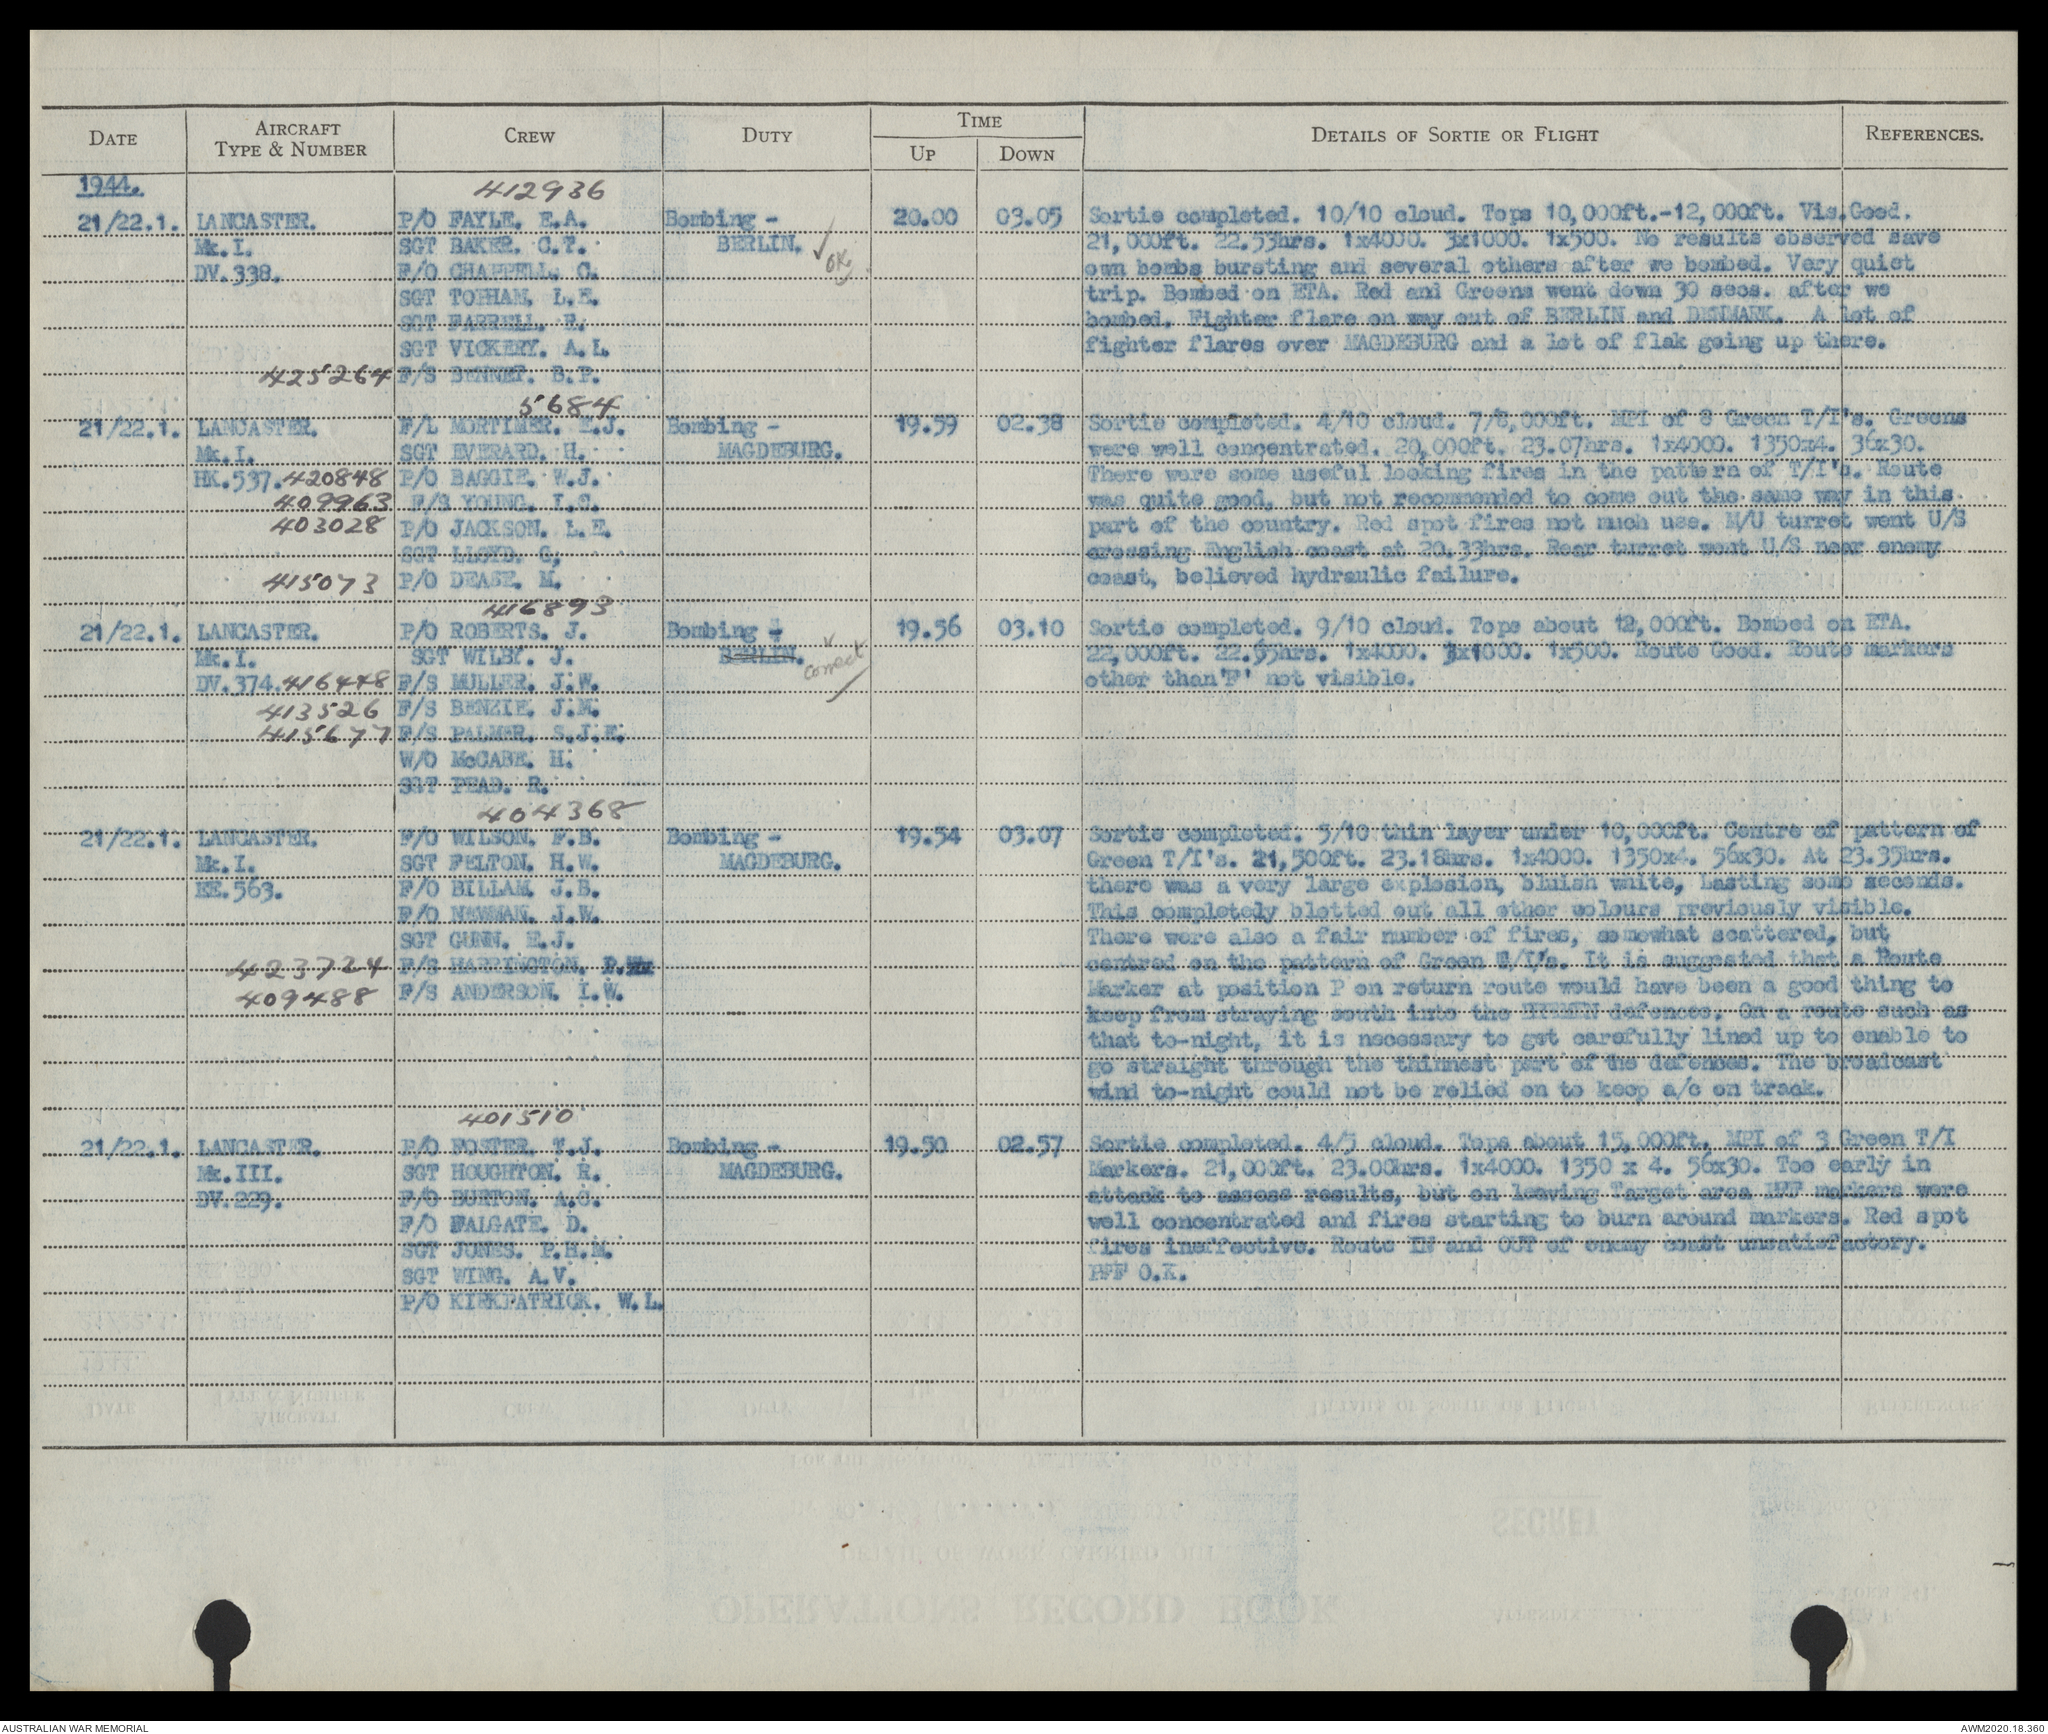 DATE AIRCRAFT TYPE & NUMBER CREW DUTY TIME UP DOWN DETAILS OF SORTIE OR FLIGHT REFERENCES.
1944. 412936
21/22.1. LANCASTER. P/O FAYLE. E.A. Bombing - 20.00 03.05 Sortie completed. 10/10 cloud. Tops 10,000ft.-12,000ft. Vis.Good.
Mk.I. SGT BAKER. C.T. BERLIN. ✓ OK 21,000ft. 22.53hrs. 1x4000. 3x1000. 1x500. No results observed save
DV.338. F/O CHAPPELL. C. own bombs bursting and several others after we bombed. Very quiet
SGT TOPHAM. L.E. trip. Bombed on ETA. Red and Greens went down 30 secs. after we
SGT FARRELL. F. bombed. Fighter flare on way out of BERLIN and DENMARK. A lot of
SGT VICKERY. A.L. fighter flares over MAGDEBURG and a lot of flak going up there.
425264 F/S BENNET. B.P.
5684
21/22.1. LANCASTER. F/L MORTIMER. E.J. Bombing - 19.59 02.38 Sortie completed. 4/10 cloud. 7/8,000ft. MPI of 8 Green T/I's. Greens
Mk.I. SGT EVERARD. H. MAGDEBURG. were well concentrated. 20,000ft. 23.07hrs. 1x4000. 1350x4. 36x30.
HK.537. 420848 P/O BAGGIE. W.J. There were some useful looking fires in the pattern of T/I's. Route
409963 F/S YOUNG. I.C. was quite good, but not recommended to come out the same way in this
403028 P/O JACKSON. L.E. part of the country. Red spot fires not much use. M/U turret went U/S
SGT LLOYD. G. crossing English coast at 20.33hrs. Rear turret went U/S near enemy
415073 P/O DEASE. M. coast, believed hydraulic failure.
416893
21/22.1. LANCASTER. P/O ROBERTS. J. Bombing - 19.56 03.10 Sortie completed. 9/10 cloud. Tops about 12,000ft. Bombed on ETA.
Mk.I. SGT WILBY. J. BERLIN. correct 22,000ft. 1x4000. 3x1000. 1x500. Route Good. Route Markers
DV.374. 416448 F/S MULLER. J.W. other than'F' not visible.
413526 F/S BENZIE. J.M.
415677 F/S PALMER. S.J.E.
W/O McCABE. H.
SGT PEAD. R.
404368
21/22.1. LANCASTER. F/O WILSON. F.B. Bombing - 19.54 03.07 Sortie completed. 5/10 thin layer under 10,000ft. Centre of pattern of
Mk.I. SGT FELTON. H.W. MAGDEBURG. Green T/I's. 21,500ft. 23.18hrs. 1x4000. 1350x4. 56x30. At 23.35hrs.
EE.563. F/O BILLAM. J.B. there was a very large explosion, bluish white, Lasting some seconds.
F/O NEWMAN. J.W. This completely blotted out all other colours previously visible.
SGT GUNN. E.J. There were also a fair number of fires, somewhat scattered, but
423724 F/S HARRINGTON. centred on the pattern of Green T/I's. It is suggested that a Route
409488 F/S ANDERSON. I.W. Marker at position P on return route would have been a good thing to
keep from straying south into the BREMEN defences. On a route such as
that to-night, it is necessary to get carefully lined up to enable to
go straight through the thinnest part of the defences. The broadcast
wind to-night could not be relied on to keep a/c on track.
401510
21/22.1. LANCASTER. P/O FOSTER. T.J. Bombing - 19.50 02.57 Sortie completed. 4/5 cloud. Tops about 15,000ft. MPI of 3 Green T/I
Mk.III. SGT HOUGHTON. R. MAGDEBURG. Markers. 21,000ft. 23.00hrs. 1x4000. 1350 x 4. 56x30. Too early in
DV.229. F/O BURTON. A.C. attack to assess results, but on leaving Target area PFF markers were
F/O FALGATE. D. well concentrated and fires starting to burn around markers. Red spot
SGT JONES. P.H.M. fires ineffective. Route IN and OUT of enemy coast unsatisfactory.
SGT WING. A.V. PFF O.K.
P/O KIRKPATRICK. W.L.
AUSTRALIAN WAR MEMORIAL AWM2020.18.360